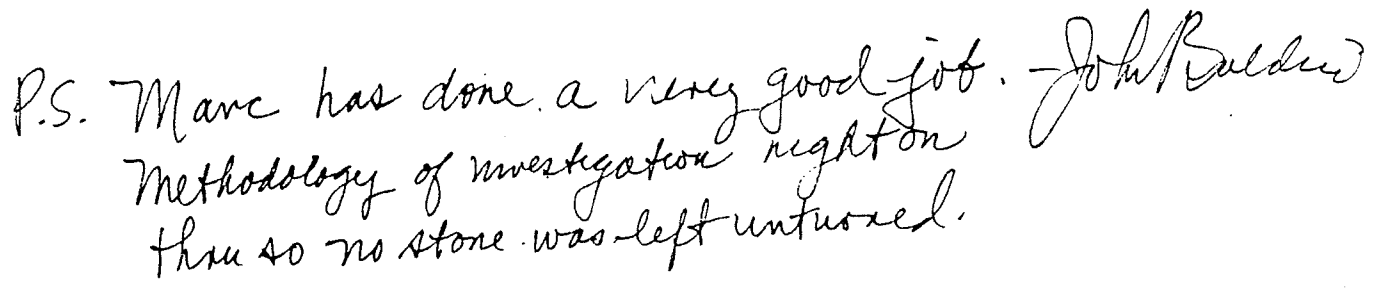 P.S. Marc has done a very good job. - John Baldwin
Methodology of investigation right on
thru so no stone was left unturned.